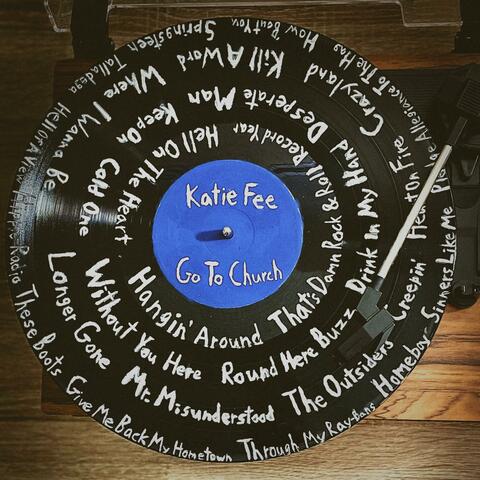 Katie Fee
Go To Church
Hell On The Heart
Hangin' Around
That's Damn Rock & Roll
Record Year
Desperate Man
Keep On
Cold One
Without You Here
Round Here Buzz
Drink In My Hand
Kill A Word
Where I Wanna Be
Longer Gone
Mr. Misunderstood
The Outsiders
Creepin'
Heart On Fire
Crazyland
How Bout You
Springsteen
Talladega
Hell Of A View
Hippie Radio
These Boots
Give Me Back My Hometown
Through My Ray-Bans
Homeboy
Sinners Like Me
Pledge Allegiance To The Hag